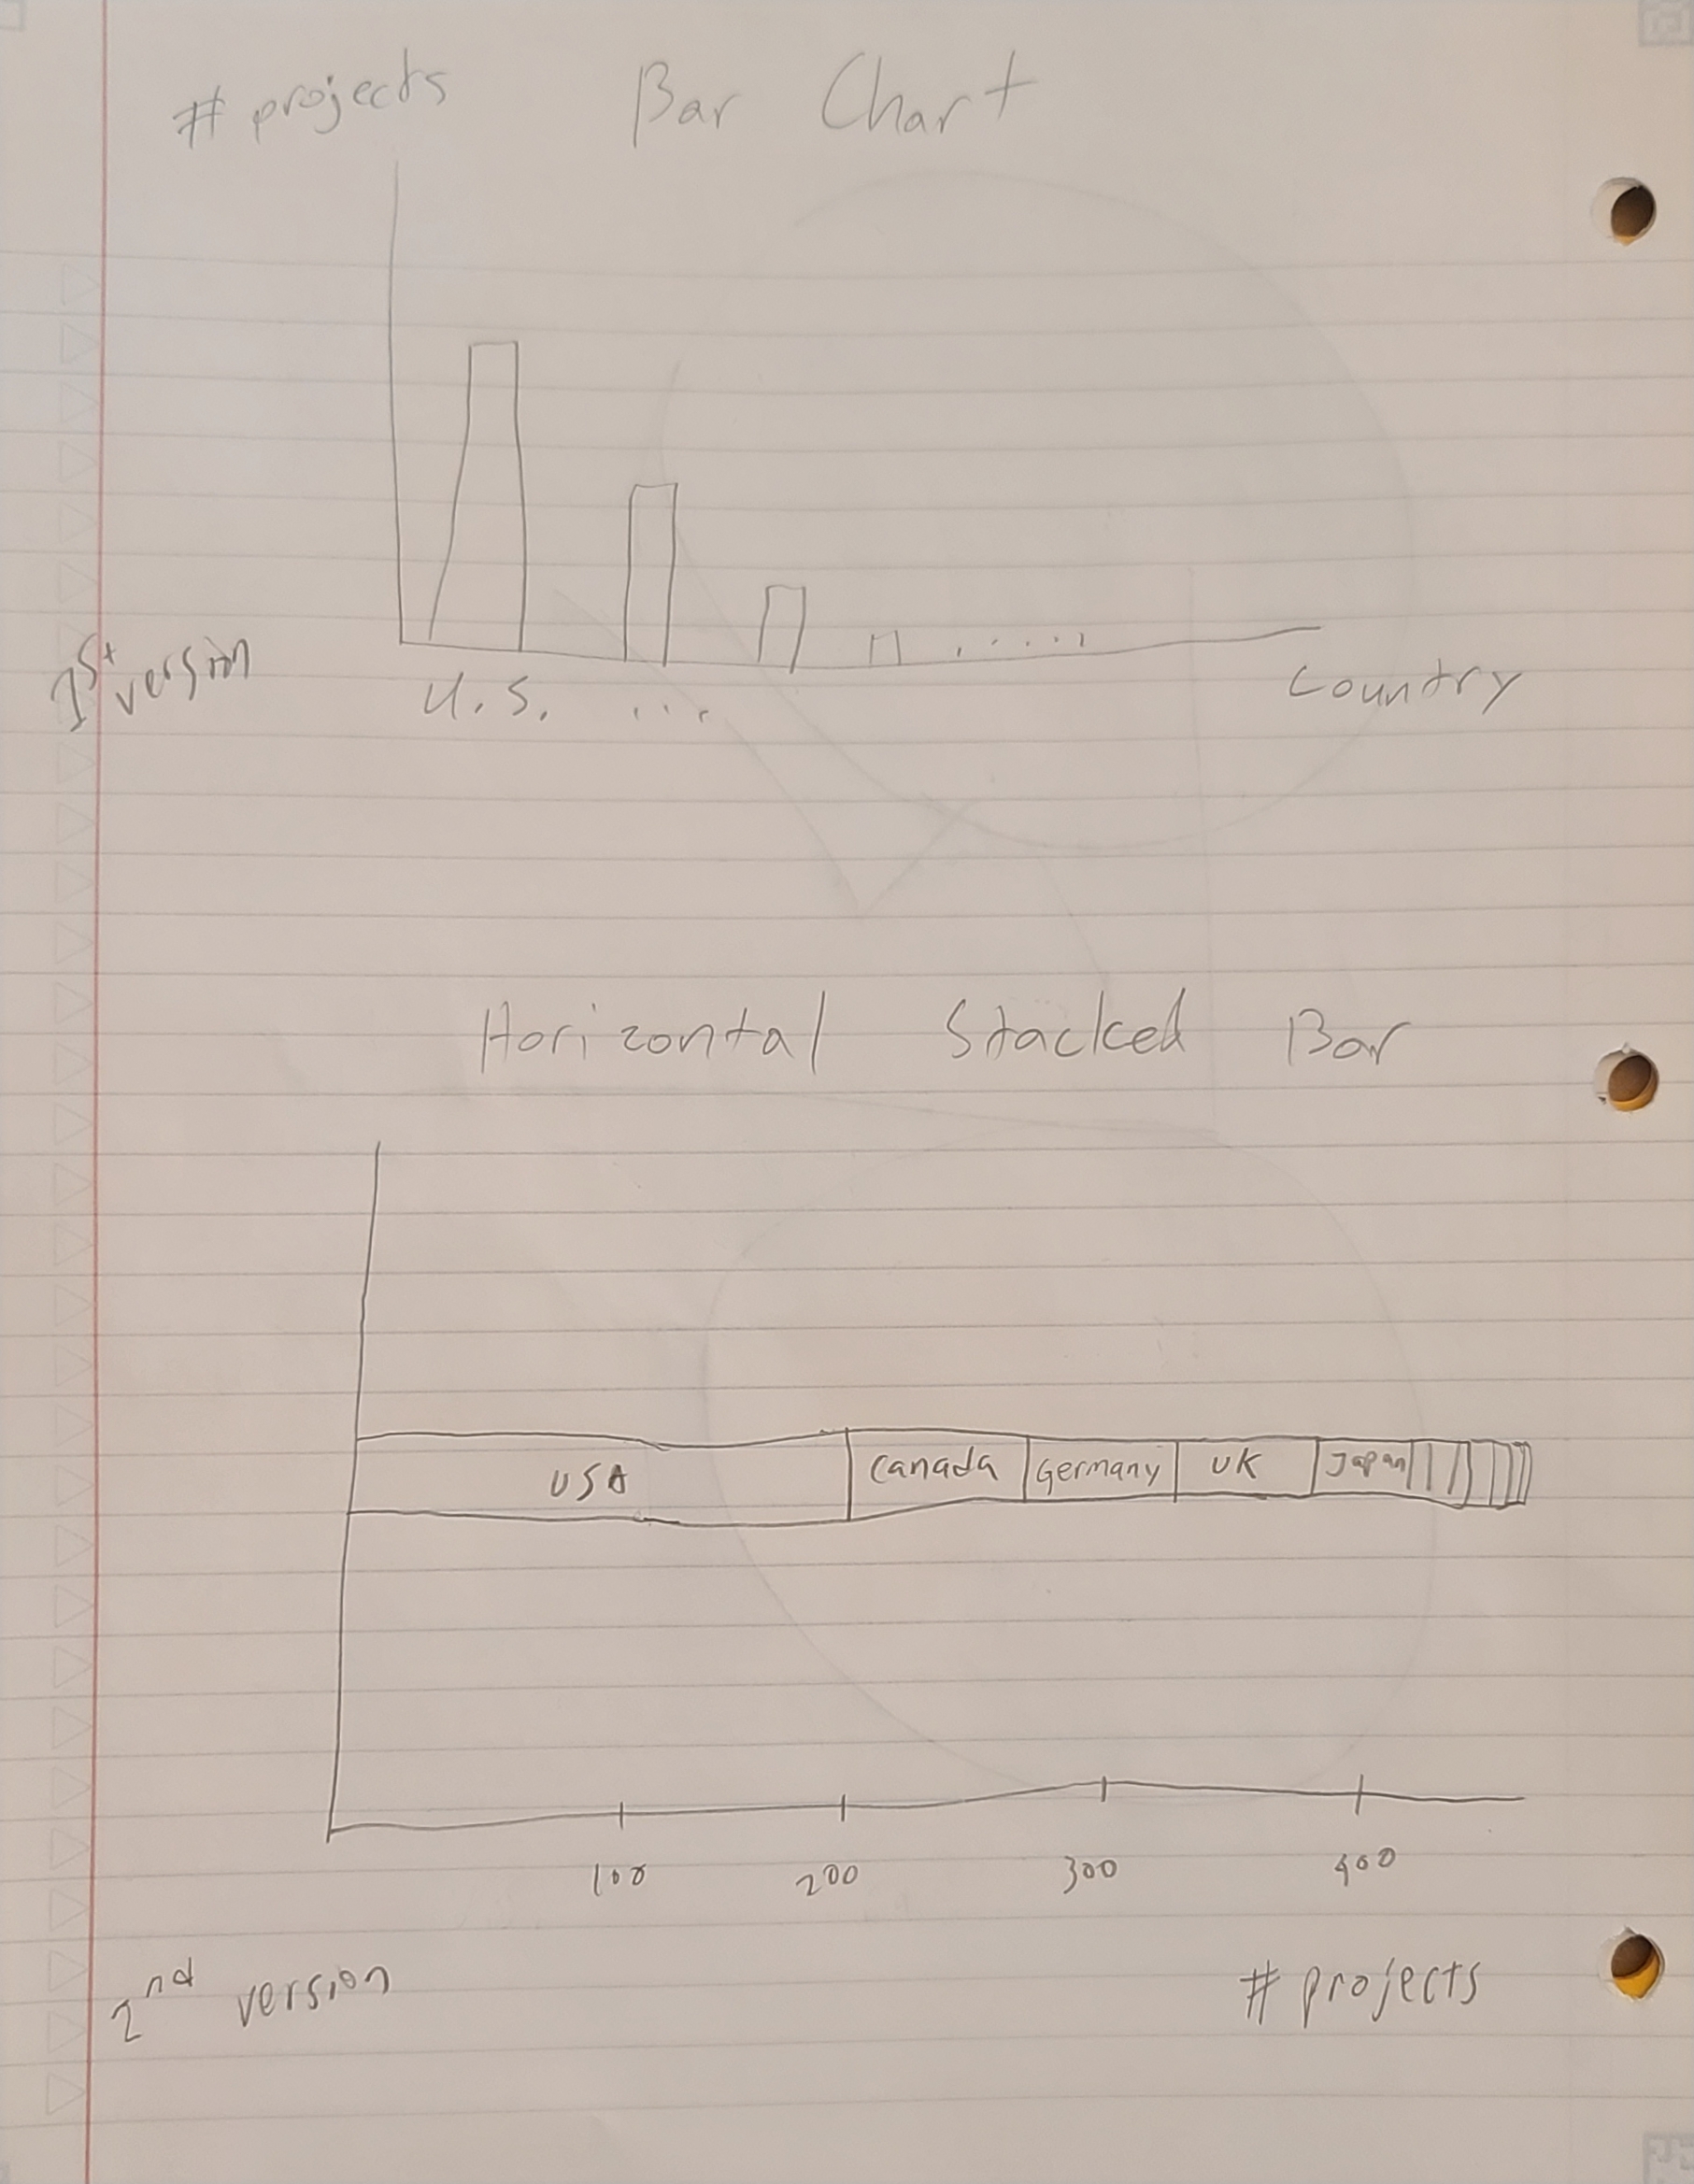 # projects Bar Chart
1st version
U.S. ... Country
Horizontal Stacked Bar
USA Canada Germany UK Japan
100 200 300 400
2nd version
# projects